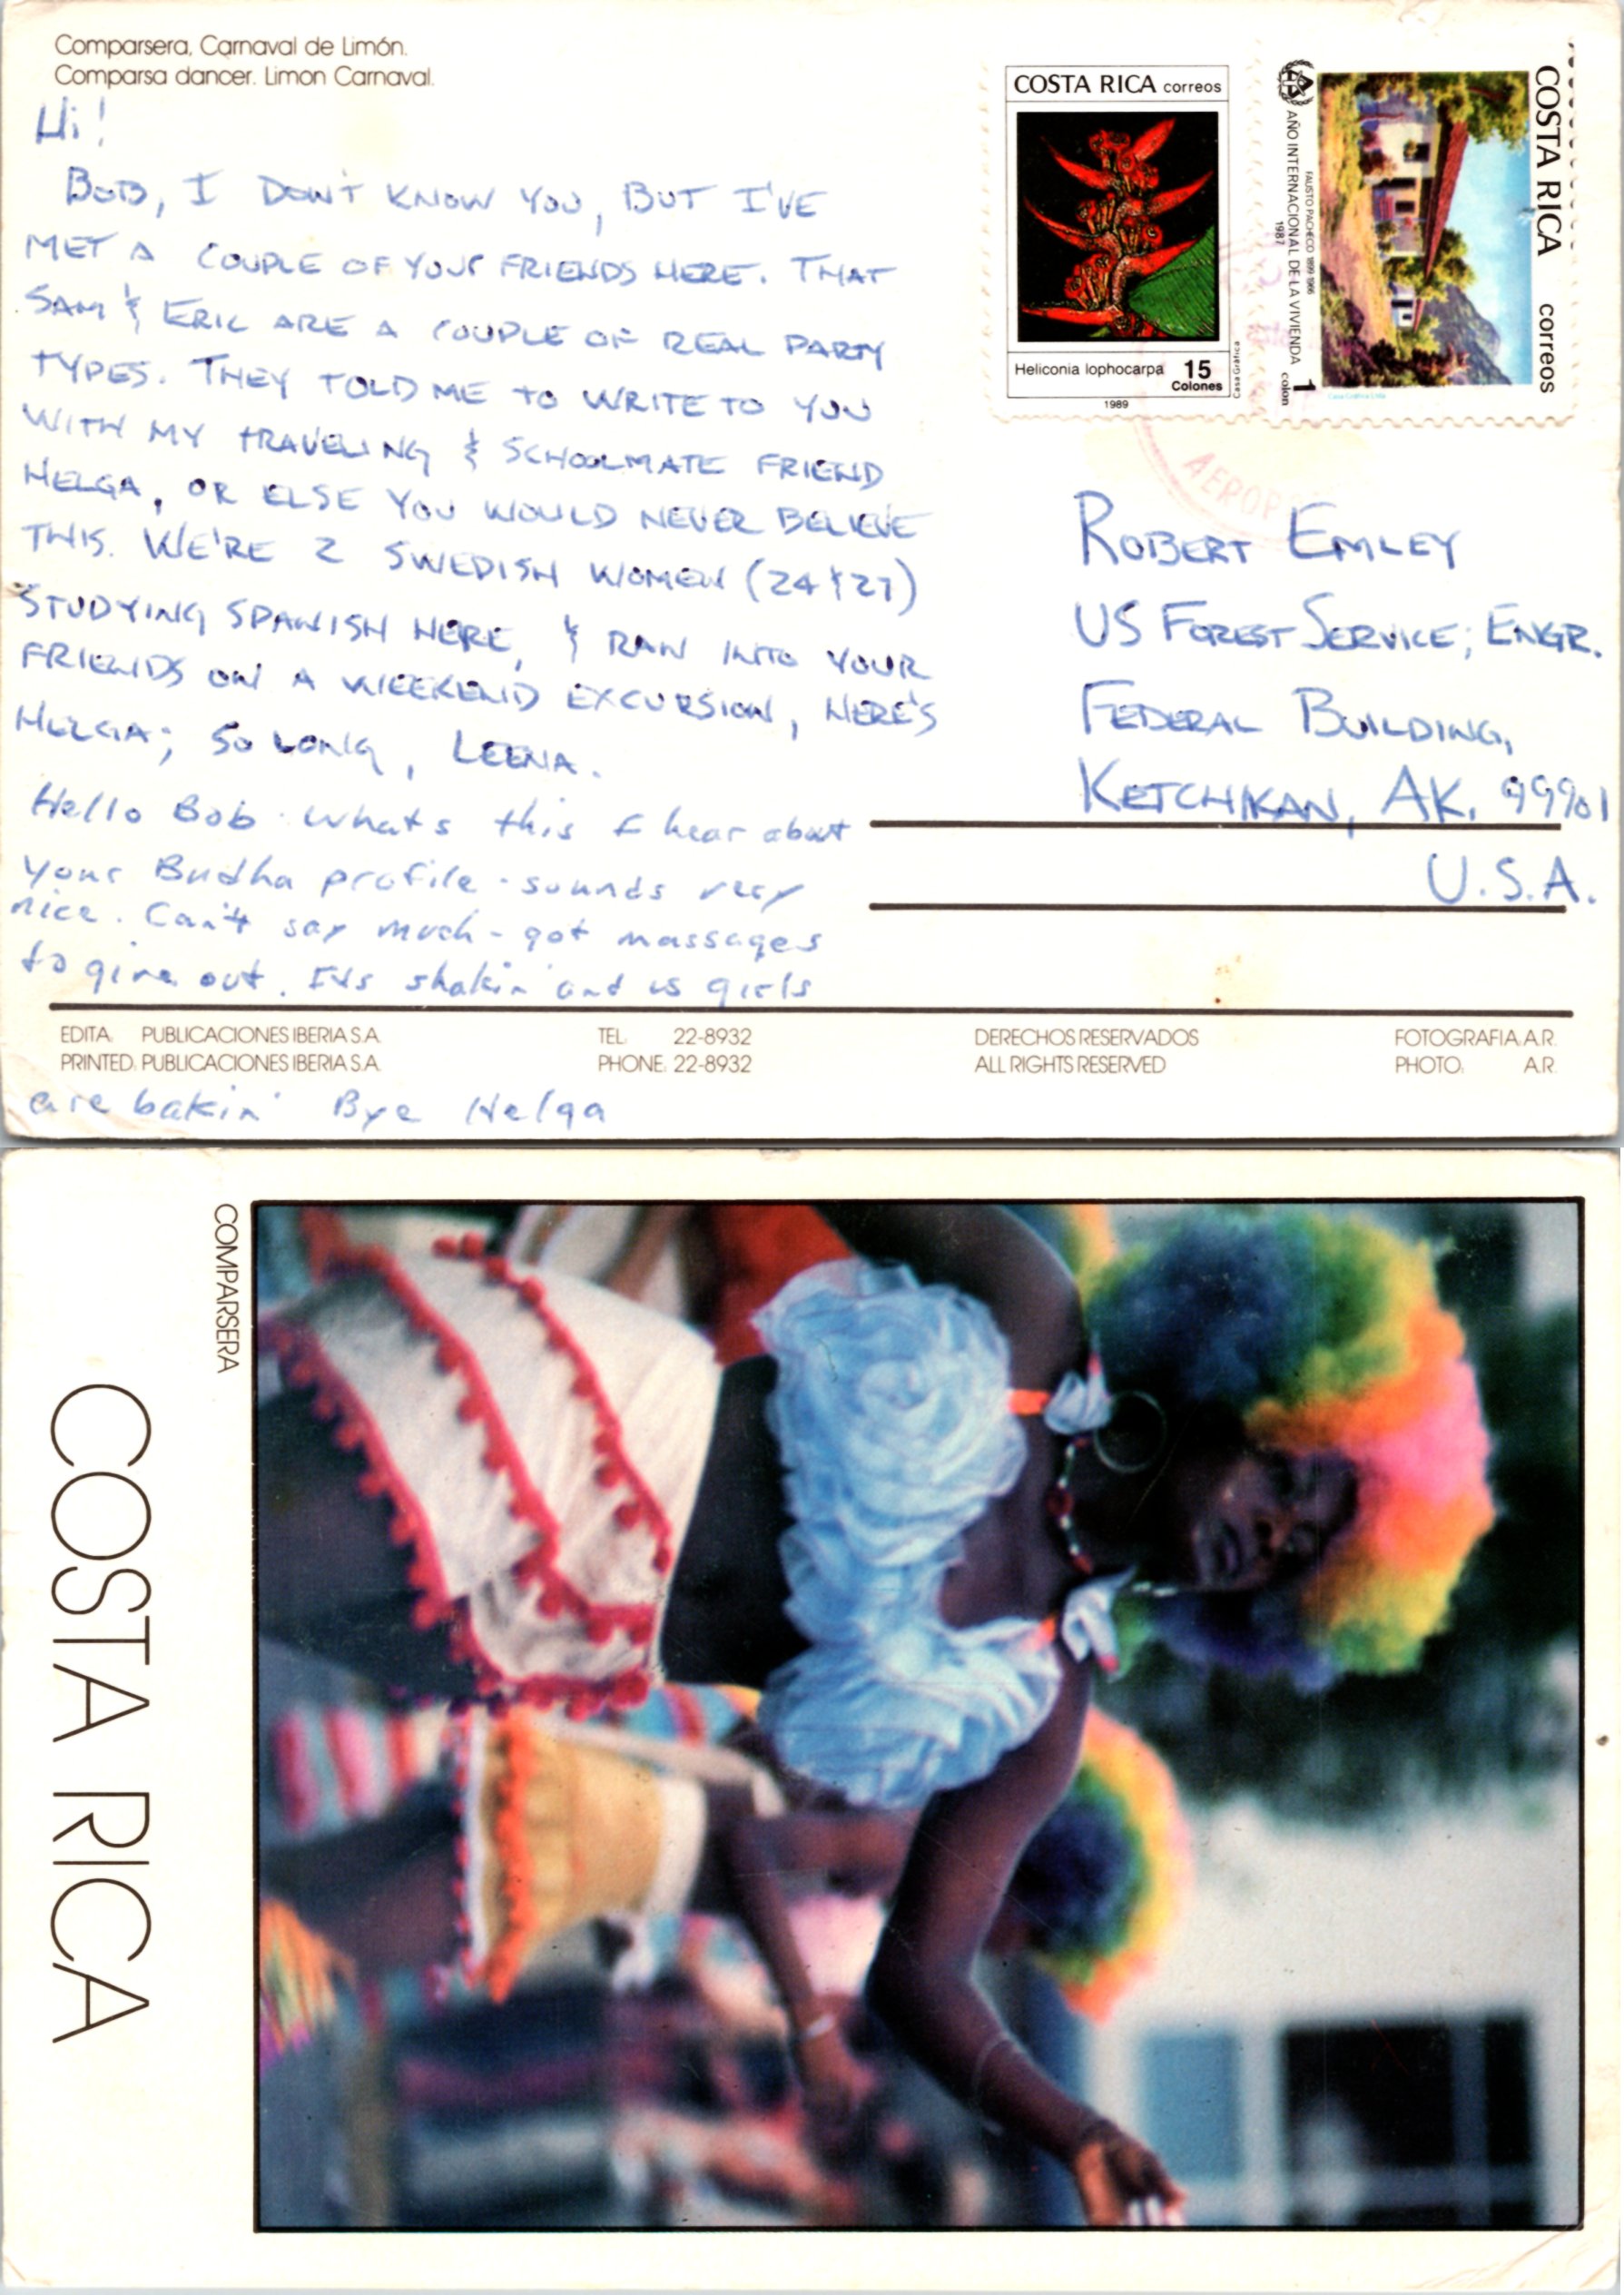 Comparsera, Carnaval de Limón.
Comparsa dancer. Limon Carnaval.
Hi!
BOB, I DON'T KNOW YOU, BUT I'VE
MET A COUPLE OF YOUR FRIENDS HERE. THAT
SAM & ERIC ARE A COUPLE OF REAL PARTY
TYPES. THEY TOLD ME TO WRITE TO YOU
WITH MY TRAVELING & SCHOOLMATE FRIEND
HELGA, OR ELSE YOU WOULD NEVER BELIEVE
THIS. WE'RE 2 SWEDISH WOMEN (24 & 27)
STUDYING SPANISH HERE, & RAN INTO YOUR
FRIENDS ON A WEEKEND EXCURSION, HERE'S
HELGA; SO LONG, LEENA.
Hello Bob. Whats this I hear about
your Budha profile - sounds very
nice. Can't say much - got massages
to give out. Its shakin' and us girls
are bakin' Bye Helga
COSTA RICA correos
Heliconia lophocarpa 15
Colones
1989
Casa Gráfica
COSTA RICA correos
FAUSTO PACHECO 1899-1966
AÑO INTERNACIONAL DE LA VIVIENDA
1987
1
colón
Casa Gráfica Ltda
ROBERT EMLEY
US FOREST SERVICE; ENGR.
FEDERAL BUILDING,
KETCHIKAN, AK. 99901
U.S.A.
EDITA. PUBLICACIONES IBERIA S.A. TEL. 22-8932 DERECHOS RESERVADOS FOTOGRAFIA: A.R.
PRINTED: PUBLICACIONES IBERIA S.A. PHONE: 22-8932 ALL RIGHTS RESERVED PHOTO: A.R.
COMPARSERA
COSTA RICA